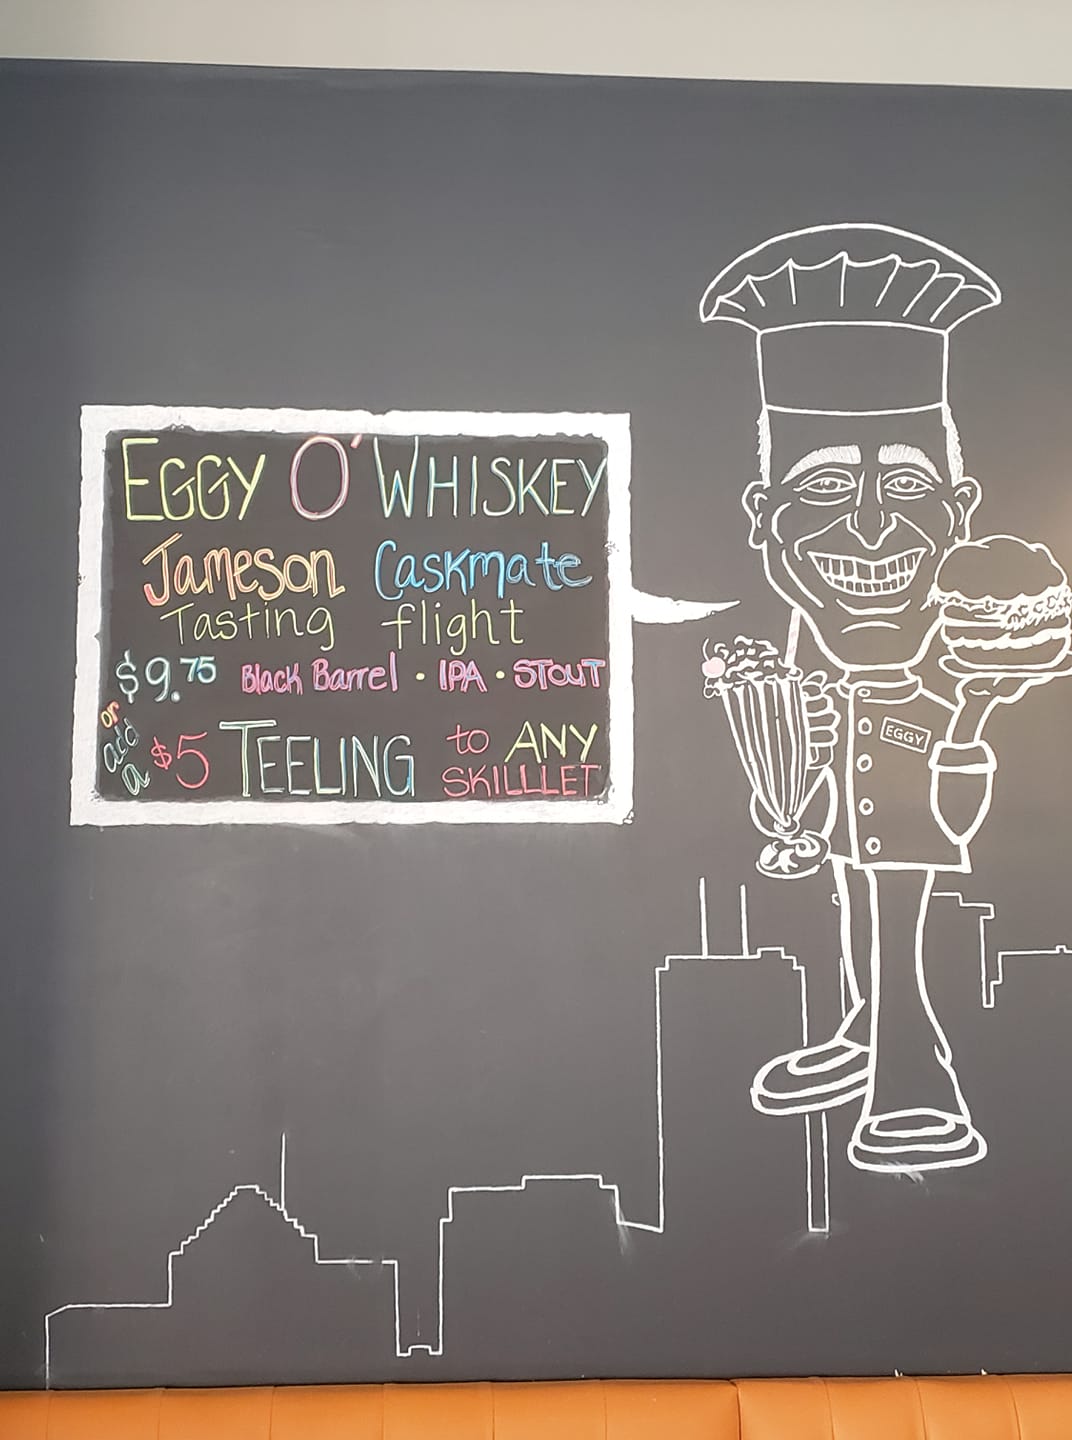 EGGY O' WHISKEY
Jameson Caskmate
Tasting flight
$9.75 Black Barrel · IPA · STOUT
or add a $5 TEELING to ANY
SKILLLET
EGGY